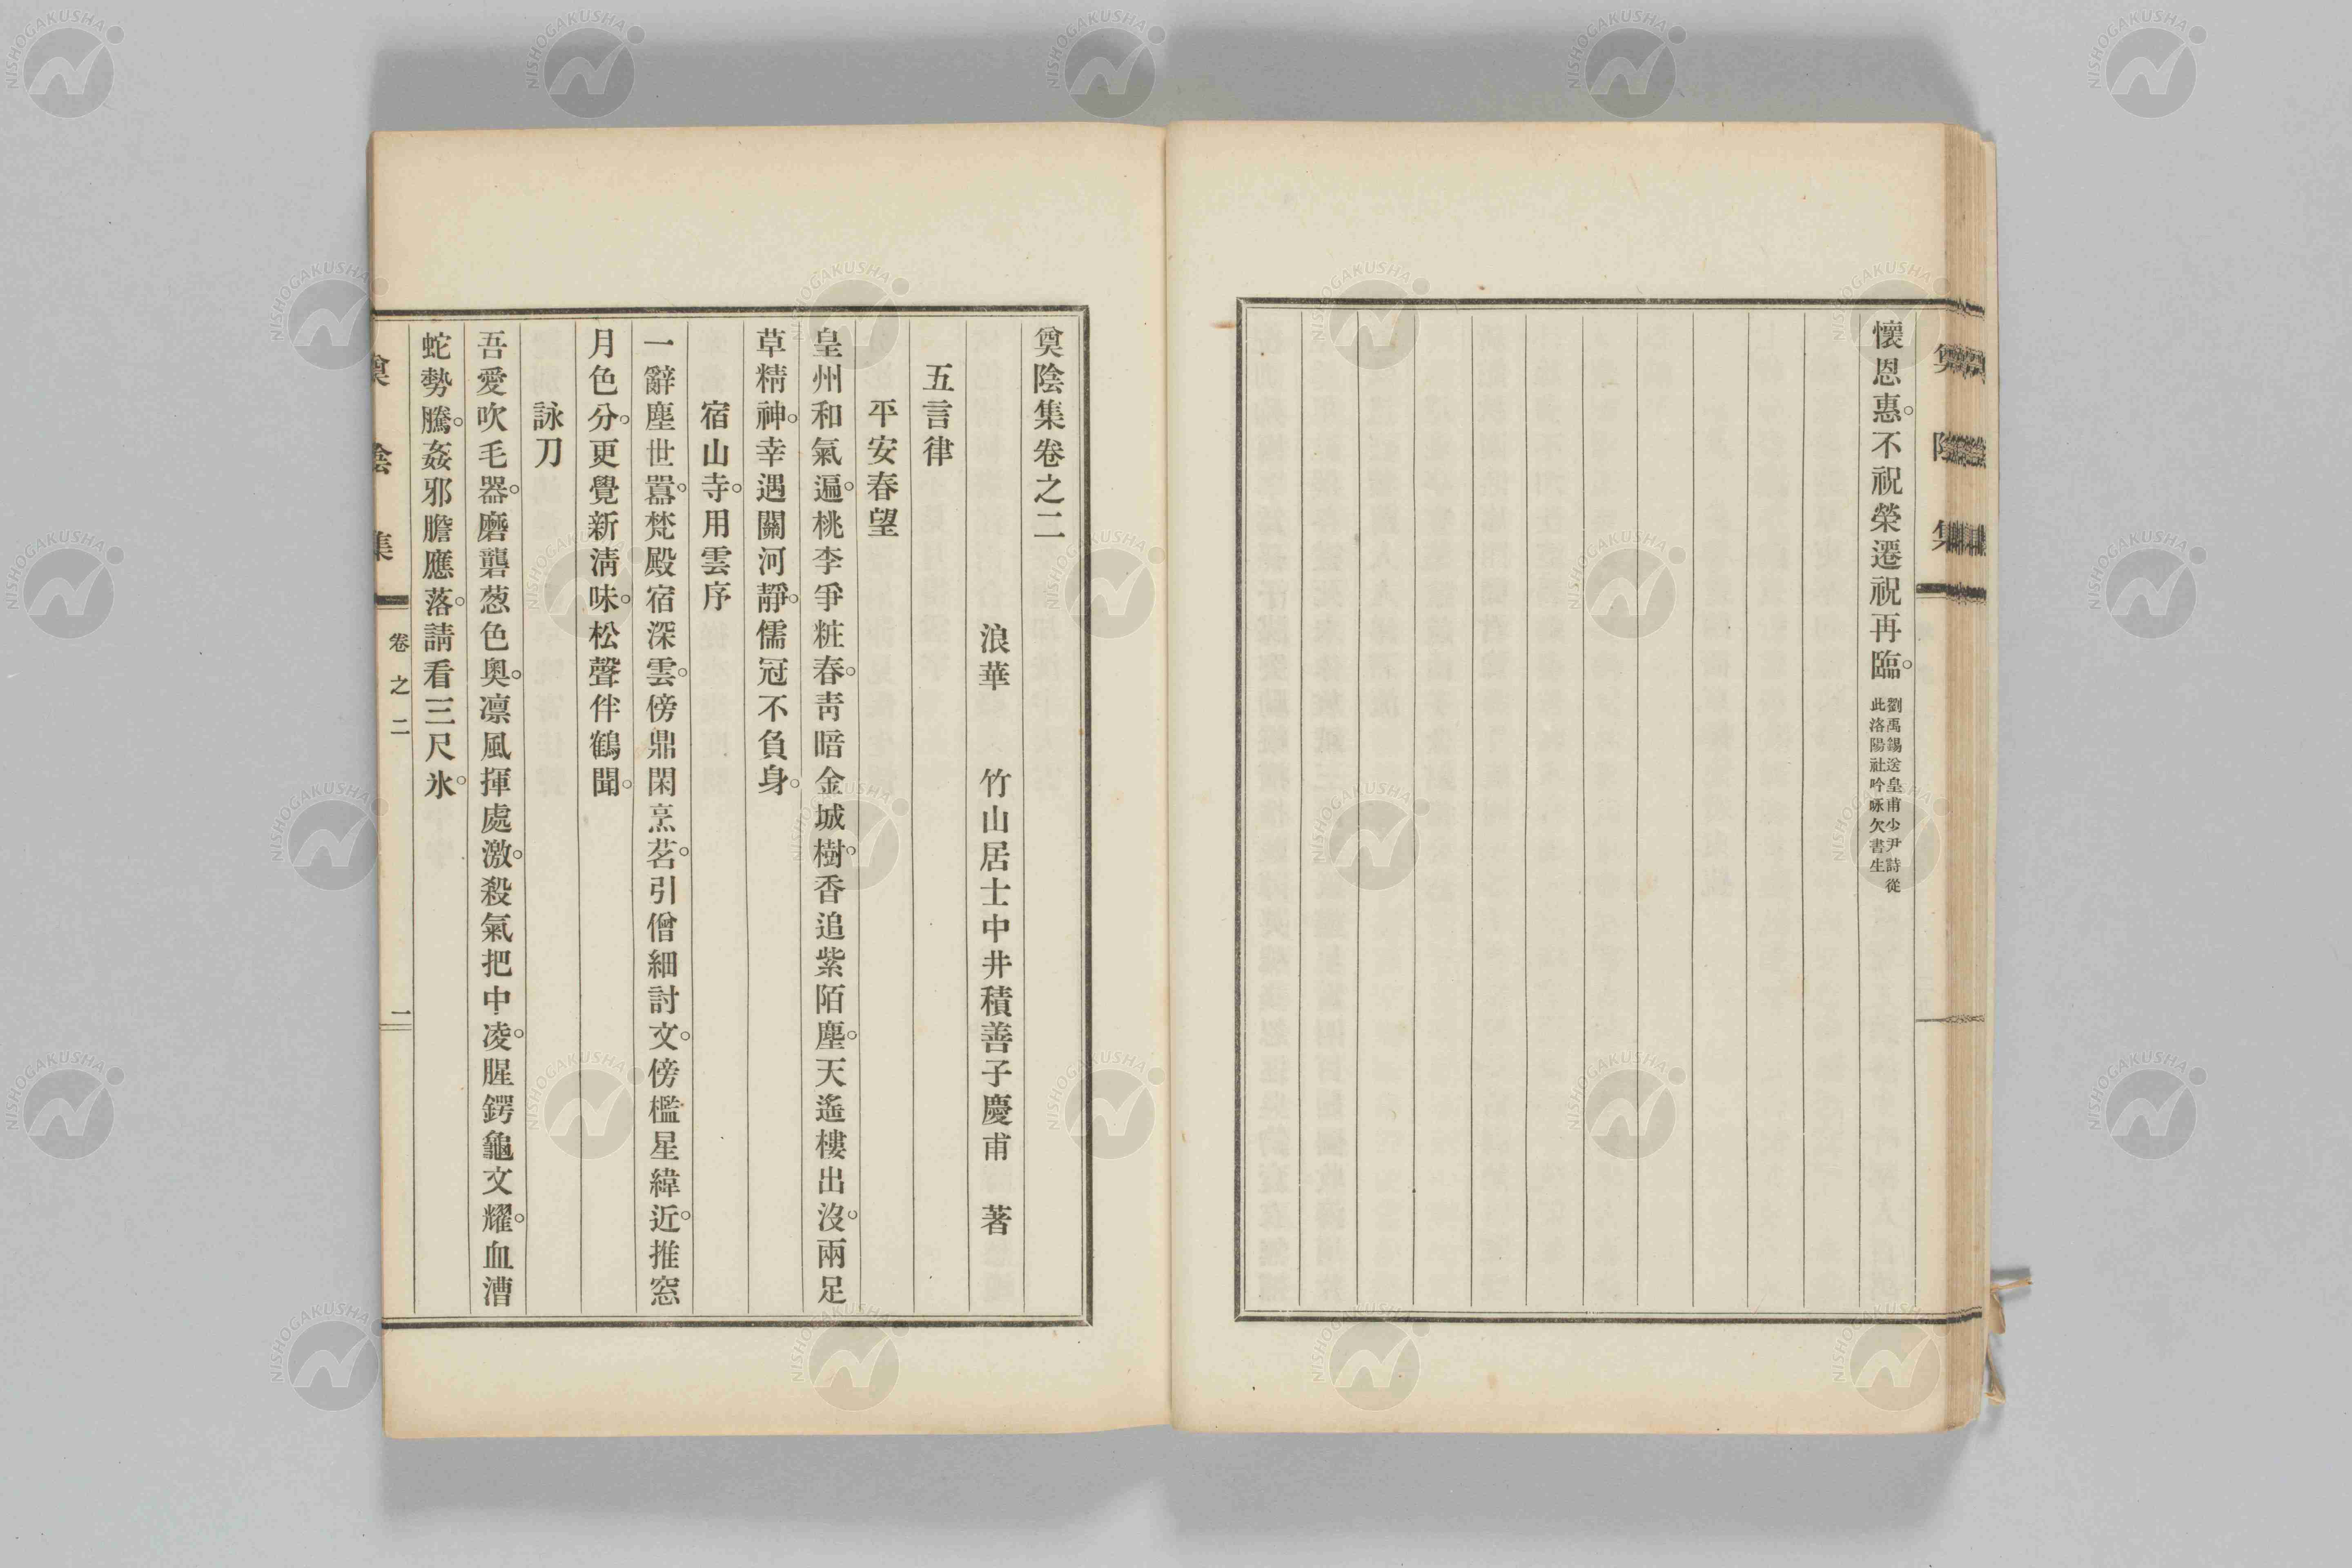 懷恩惠。不祝榮遷祝再臨。劉禹錫送皇甫少尹詩從
此洛陽社吟咏欠書生
奠陰集卷之二
浪華　竹山居士中井積善子慶甫　著
五言律
平安春望
皇州和氣遍。桃李爭粧春。靑暗金城樹。香追紫陌塵。天遙樓出沒。雨足
草精神。幸遇關河靜。儒冠不負身。
宿山寺。用雲序
一辭塵世囂。梵殿宿深雲。傍鼎閑烹茗。引僧細討文。傍檻星緯近。推窓
月色分。更覺新淸味。松聲伴鶴聞。
詠刀
吾愛吹毛器。磨礱葱色奧。凛風揮處激。殺氣把中凌。腥鍔龜文耀。血漕
蛇勢騰。姦邪膽應落。請看三尺氷。
奠陰集
卷之二
一
NISHOGAKUSHA